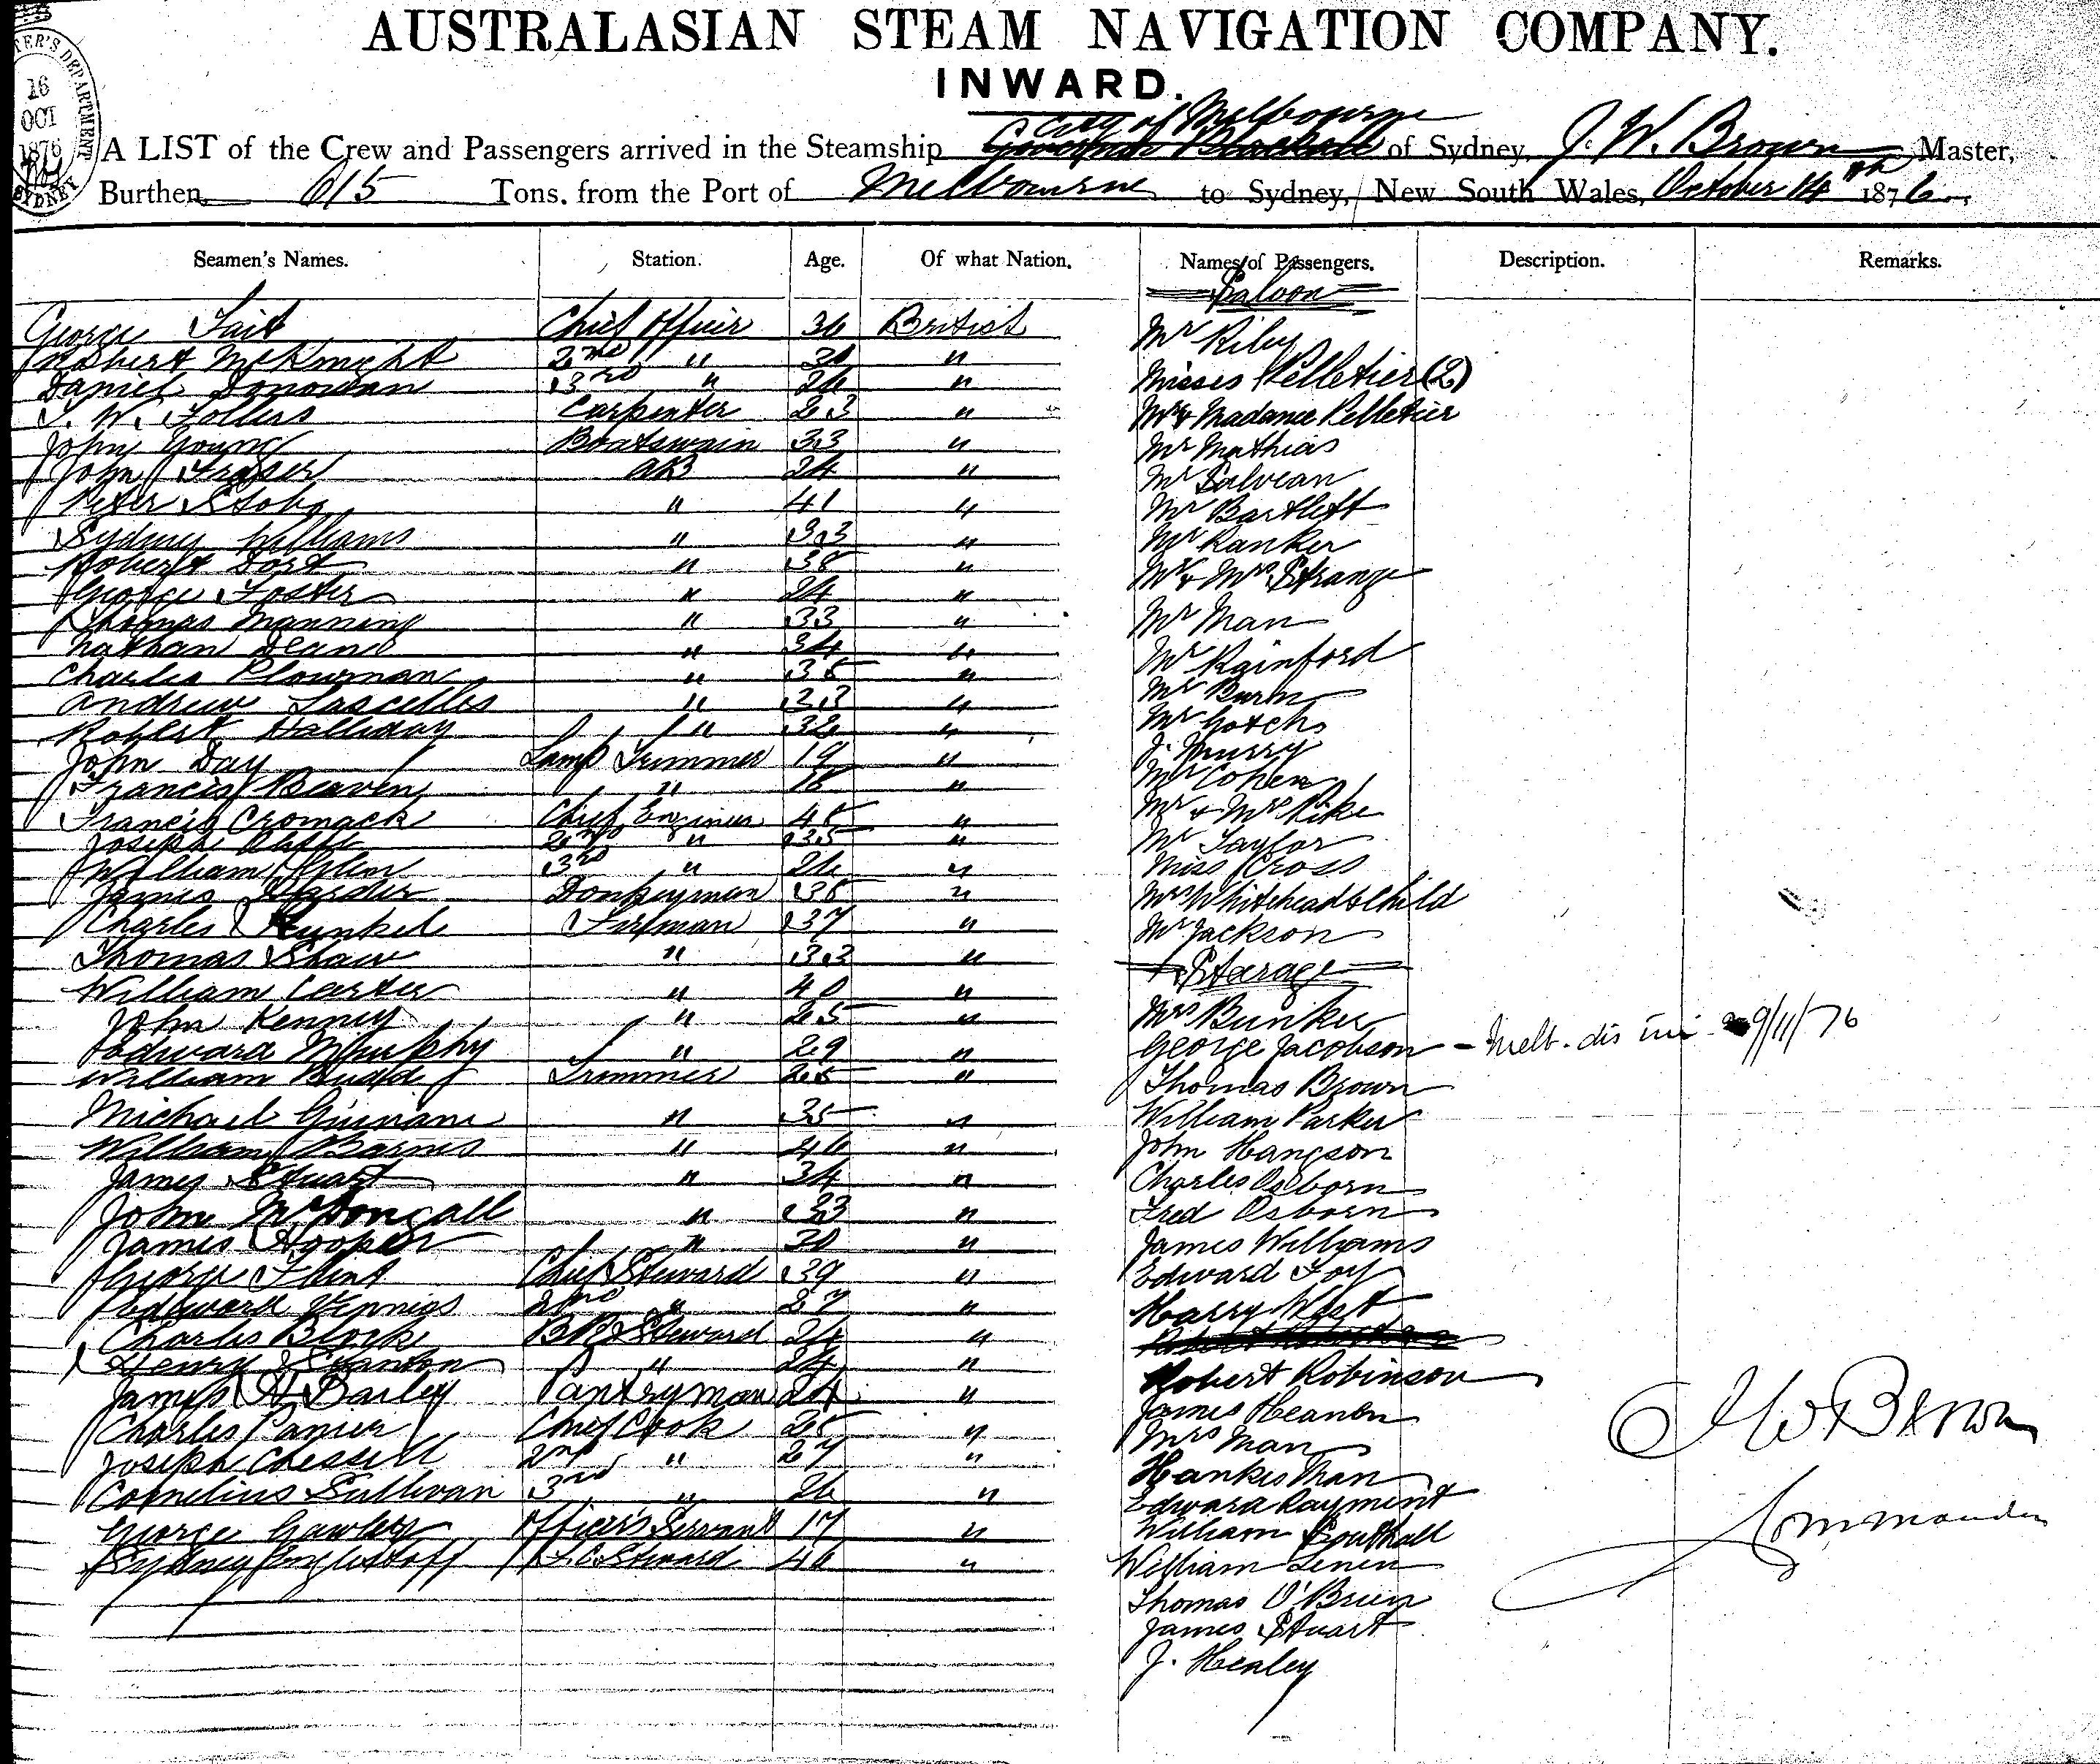 AUSTRALASIAN STEAM NAVIGATION COMPANY.
INWARD.
16
OCT
1876
SYDNEY
City of Melbourne
A LIST of the Crew and Passengers arrived in the Steamship Governor Blackall of Sydney, J. W. Brown Master,
Burthen 615 Tons. from the Port of Melbourne to Sydney, New South Wales, October 14th 1876.
Seamen's Names. Station. Age. Of what Nation. Names of Passengers. Description. Remarks.
Saloon
George Tait Chief Officer 36 British Mr Riley
Robert McKnight 2nd " 30 " Misses Pelletier (2)
Daniel Donovan 3rd " 26 " Mr & Madame Pelletier
J. W. Follers Carpenter 23 " Mr Mathias
John Young Boatswain 33 " Mr Salvean
John Fraser AB 24 " Mr Bartlett
Peter Stobo " 41 " Mr Ranker
Sydney Williams " 33 " Mr & Mrs Strange
Robert Dort " 38 " Mr Man
George Foster " 24 " Mr Rainford
Thomas Manning " 33 "
Nathan Deano " 34 " Mr Gotch
Charles Plowman " 35 " J. Murry
Andrew Lascelles " 33 " Mr Cohen
Robert Halliday " 32 " Mr & Mrs Pike
John Day Lamp Trimmer 19 " Mr Taylor
Francis Beaven " 18 " Miss Cross
Francis Cromack Chief Engineer 45 " Mrs Whitehead & Child
Joseph 2nd " 35 " Mr Jackson
William 3rd " 26 "
James Harder Donkeyman 38 "
Charles Kunkel Fireman 37 "
Thomas Shaw " 33 " Steerage
William Carter " 40 " Mrs Bunker
John Kenney " 25 " George Jacobson - Melb. dis 9/11/76
Edward Murphy " 29 " Thomas Brown
William Budd Trimmer 25 " William Parker
Michael Guinane " 35 " John Hangson
William Barnes " 46 " Charles Osborn
James Stuart " 34 " Fred Osborn
John McDongall " 33 " James Williams
James Hooper " 30 " Edward Foy
George Flint Chief Steward 39 " Harry West
Edward Jennigs 2nd " 27 "
Charles Block BR Steward 24 " Robert Robinson
Henry Stanton " 24 " James Heanen
James H. Barley Pantryman 24 " Mrs Man
Charles Panier Chief Cook 25 " Hankis Man
Joseph Chessell 2nd " 27 " Edward Rayment
Cornelius Sullivan 3rd " 26 " William Southall
George Gawler Officers Servant 17 " William Lenen
Sydney F.C. Steward 46 " Thomas O'Brien
James Stuart
J. Healey
J W Brown
Commander